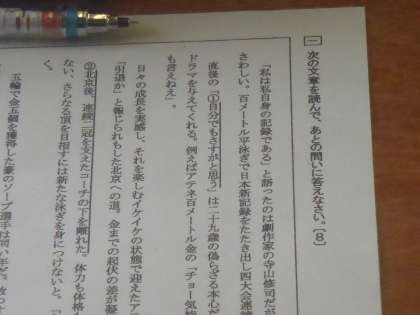 一 次の文章を読んで、あとの問いに答えなさい。〔8〕
「私は私自身の記録である」と語ったのは劇作家の寺山修司だが
さわしい。百メートル平泳ぎで日本新記録をたたき出し四大会連続
直後の「①自分でもさすがと思う」は二十九歳の偽らざる本心だ
ドラマを与えてくれる。例えばアテネ百メートル金の「チョー気持
も言えねえ」
日々の成長を実感し、それを楽しむイケイケの状態で迎えたア
「引退か」と報じられもした北京への道。金までの起伏の差が
②北京後、連続二冠を支えたコーチの下を離れた。体力も体格
ない、さらなる頂を目指すには新たな泳ぎを身につけないと。
く。
五輪で金五個を獲得した豪のソープ選手は司い年だ。